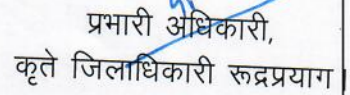 प्रभारी अधिकारी,
कृते जिलाधिकारी रूद्रप्रयाग